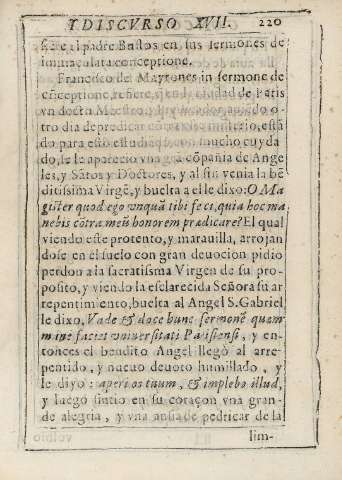 Y DISCVRSO XVII. 220
fiere el padre Bustos en sus sermones de
immaculata conceptione.
Francisco de Mayrones in sermone de
cōceptione, refiere, q̄ en la ciudad de Paris
vn docto Maestro, y
tro dia de predicar este misterio, está
do para esto estudiādo con mucho cuyda
do, se le aparecio vna grā cōpañia de Ange
les, y Sātos y Doctores, y al fin venia la bē
ditissima Virgē, y buelta a el le dixo: O Ma
gister quod ego vnquā tibi feci, quia hoc ma
nebis cōtra meū honorem prædicare? El qual
viendo este protento, y marauilla, arrojan
dose en el suelo con gran deuocion pidio
perdon a la sacratissma Virgen de su pro-
posito, y viendo la esclarecida Señora su ar
repentimiento, buelta al Angel S. Gabriel
le dixo, Vade & doce hunc sermonē quem
mane faciet vniuersitati Parisiensi, y en
tonces el bendito Angel llegò al arre-
pentido, y nueuo deuoto humillado, y
le diyo: aperi os tuum, & implebo illud,
y luego sintio en su coraçon vna gran-
de alegria, y vna ansia de pedricar de la
lim-